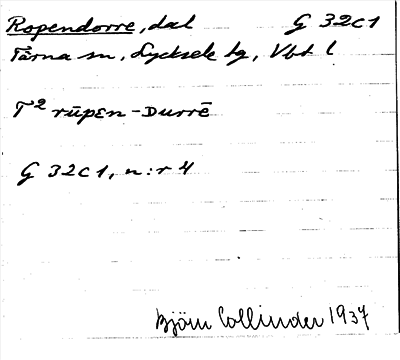 Ropendorre, dal G 32C1
Tärna sn, Lycksele lg, Vbt l
T² rūpεn-Durrē
G 32C1, n:r 4
Björn Collinder 1937